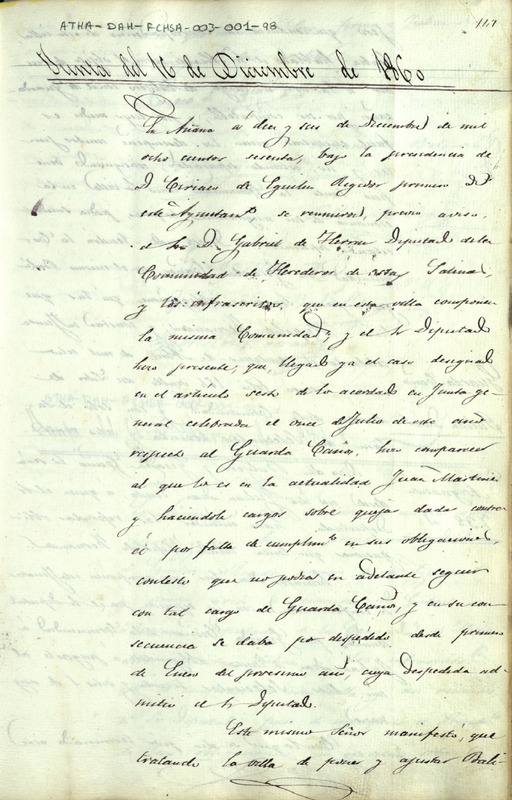 ATHA-DAH-FCHSA-003-001-98
117
Junta del 16 de Diciembre de 1860
En Añana á diez y seis de Diciembre de mil
ocho cientos sesenta, bajo la presidencia de
D. Ciriaco de Eguiluz Regidor primero del
este Ayuntam.to se reunieron, previo aviso,
el Sr. D. Gabriel de Herran Diputado de la
Comunidad de Herederos de estas Salinas,
y los infrascritos, que en esta villa componen
la misma Comunidad; y el Sr. Diputado
hizo presente, que, llegado ya el caso designado
en el articulo sesto de lo acordado en Junta ge-
neral celebrada el once de Julio de este año
respecto al Guarda Caños, hizo comparecer
al que lo es en la actualidad Juan Martinez
y haciendole cargos sobre quejas dadas contra
él por falta de cumplim.to en sus obligaciones,
contestó que no podia en adelante seguir
con tal cargo de Guarda Caños, y en su con-
secuencia se daba por despedido desde primero
de Enero del procsimo año, cuya despedida ad-
mitió el Sr. Diputado.
Este mismo Señor manifestó, que
tratando la villa de poner y ajustar